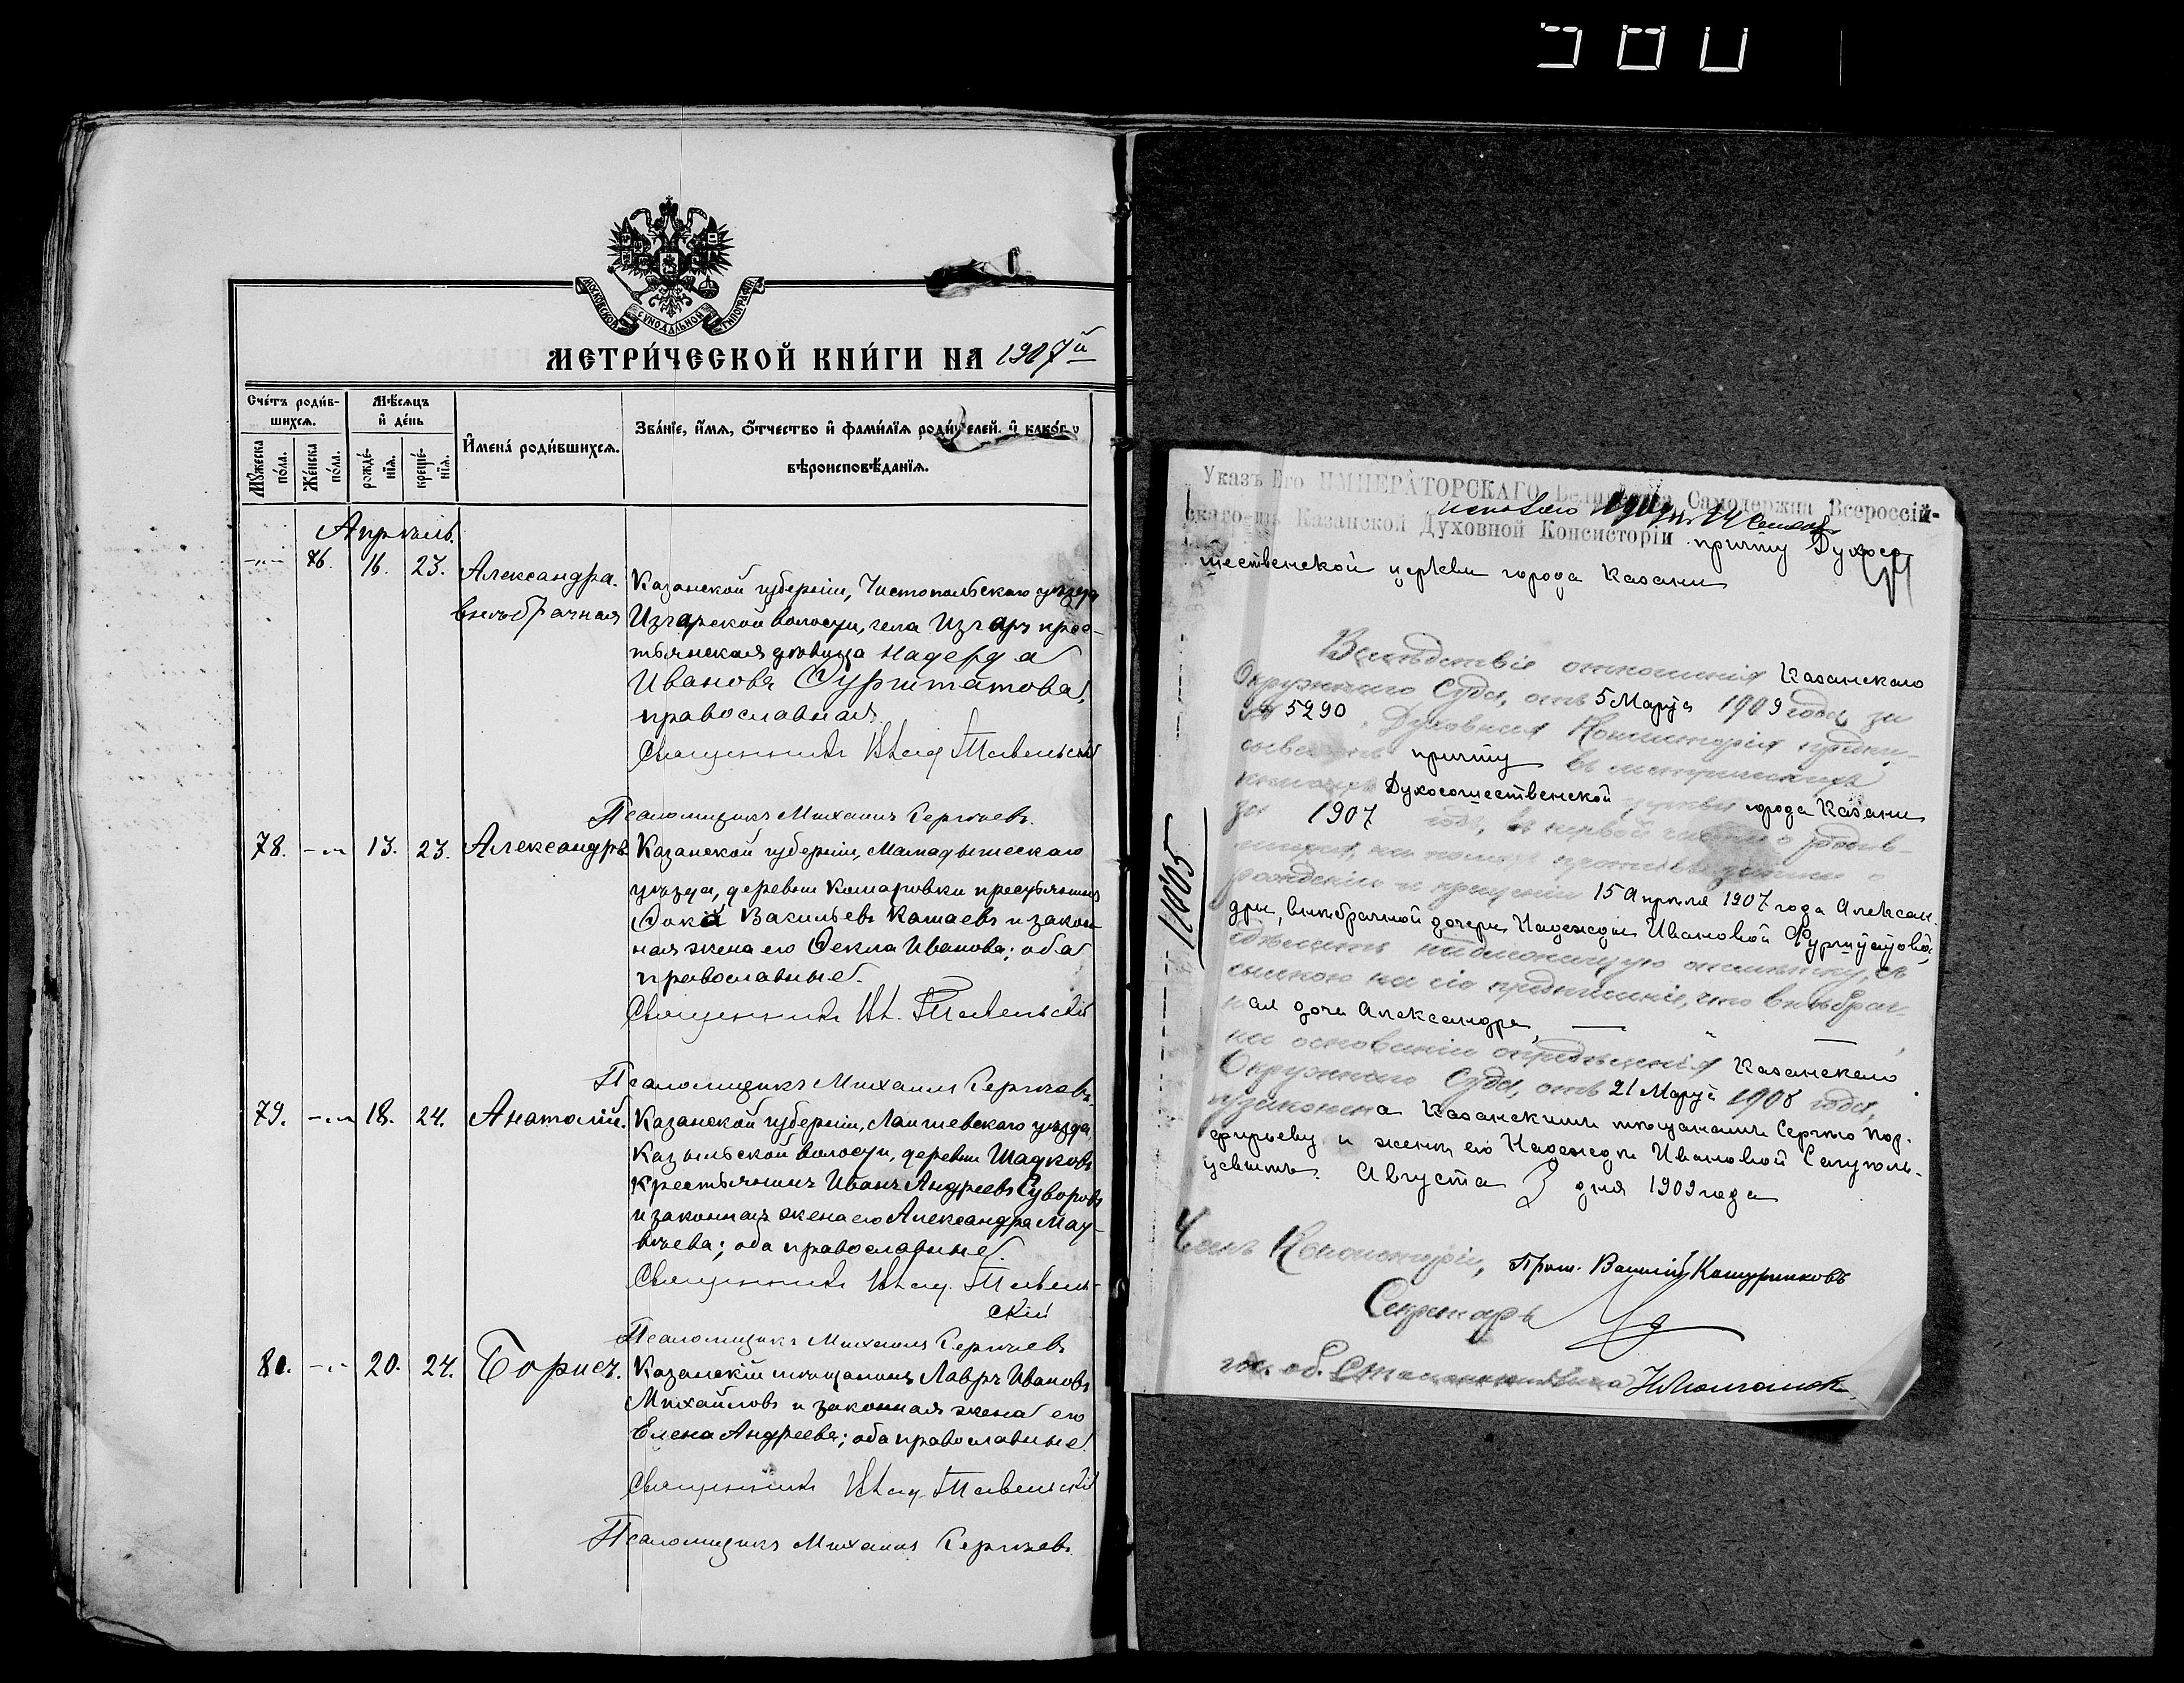 МОСКОВСКОЙ СѴНОДАЛЬНОЙ ТИПОГРАФІИ
МЕТРИ́ЧЕСКОЙ КНИ́ГИ НА 1907й
Сче́тъ роди́в-
шихся.
Мѣ́сяцъ
и҆ де́нь
И҆мена̀ роди́вшихся.
Зва́нїе, и҆́мя, ѻ҆́тчество и҆ фами́лїя роди́телей, и҆ како́гѡ
вѣроисповѣ́данїя.
Мꙋ́жеска по́ла.
Же́нска по́ла.
рожде́нїя.
креще́нїя.
Апрѣль.
76. 16. 23. Александра.
внѣбрачная
Казанской губерніи, Чистопольскаго уѣзда
Изгарской волости, села Изгаръ крес-
тьянская дѣвица Надежда
Иванова Фурштатова,
православная.
Священникъ Влад. Тавельскій
Псаломщикъ Михаилъ Сергѣевъ.
78. 13. 23. Александръ
Казанской губерніи, Мамадышскаго
уѣзда, деревни Комаровки крестьянинъ
Фока Васильевъ Катаевъ и закон-
ная жена его Ѳекла Иванова; оба
православные.
Священникъ Вл. Тавельскій
Псаломщикъ Михаилъ Сергѣевъ.
79. 18. 24. Анатолій.
Казанской губерніи, Лаишевскаго уѣзда
Казыльской волости, деревни Шадковъ
крестьянинъ Иванъ Андреевъ Суворовъ
и законная жена его Александра Мат-
вѣева; оба православные.
Священникъ Влад. Тавель-
скій
Псаломщикъ Михаилъ Сергѣевъ
80. 20. 24. Борисъ.
Казанскій мѣщанинъ Лавръ Ивановъ
Михайловъ и законная жена его
Елена Андреева; оба православные.
Священникъ Влад. Тавельскій
Псаломщикъ Михаилъ Сергѣевъ.
Указъ Его ИМПЕРАТОРСКАГО Величества Самодержца Всероссій-
скаго изъ Казанской Духовной Консисторіи причту Духосо-
шественской церкви города Казани
Вслѣдствіе отношенія Казанскаго
Окружнаго Суда, отъ 5 Марта 1909 года за
№ 5290, Духовная Консисторія предпи-
сываетъ причту въ метрическихъ
книгахъ Духосошественской церкви города Казани
за 1907 годъ, въ первой части о родив-
шихся, на поляхъ противъ записи о
рожденіи и крещеніи 15 Апрѣля 1907 года Алексан-
дры, внѣбрачной дочери Надежды Ивановой Фурштатовой,
сдѣлать надлежащую отмѣтку, съ
ссылкою на сіе предписаніе, что внѣбрач-
ная дочь Александра,
на основаніи опредѣленія Казанскаго
Окружнаго Суда, отъ 21 Марта 1908 года,
узаконена Казанскими мѣщанами Сергѣю Пор-
фирьеву и женѣ его Надеждѣ Ивановой
Августа 3 дня 1909 года
Членъ Консисторіи, Прот. Василій Кошурниковъ
Секретарь
11005